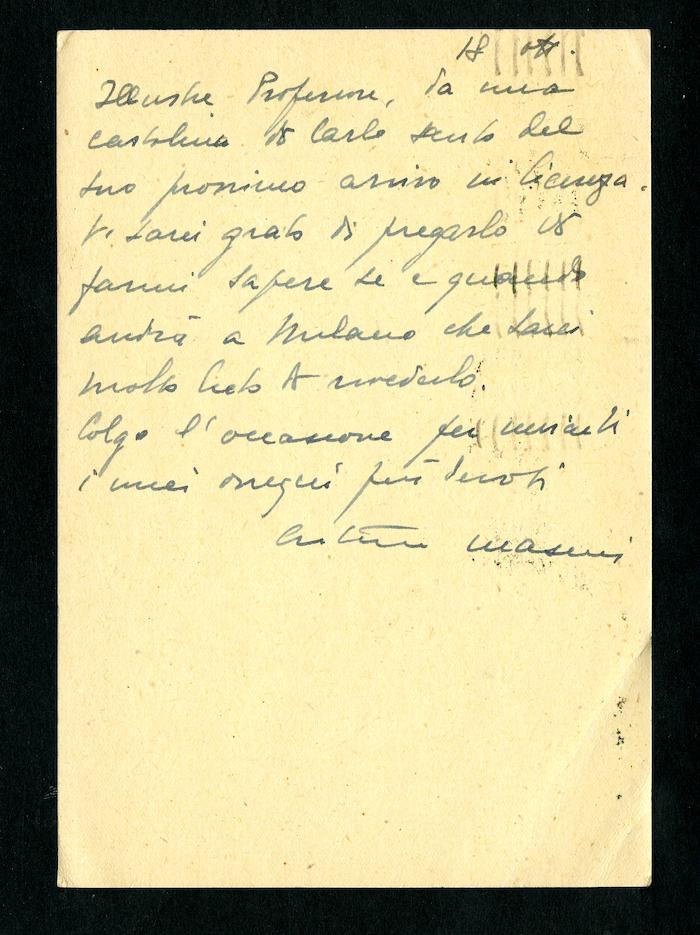 18 ott.
Illustre Professore, da una
cartolina di Carlo sento del
suo prossimo arrivo in licenza.
Vi sarei grato di pregarlo di
farmi sapere se e quando
andrà a Milano che sarei
molto lieto di rivederlo.
Colgo l'occasione per inviarti
i miei ossequi più devoti